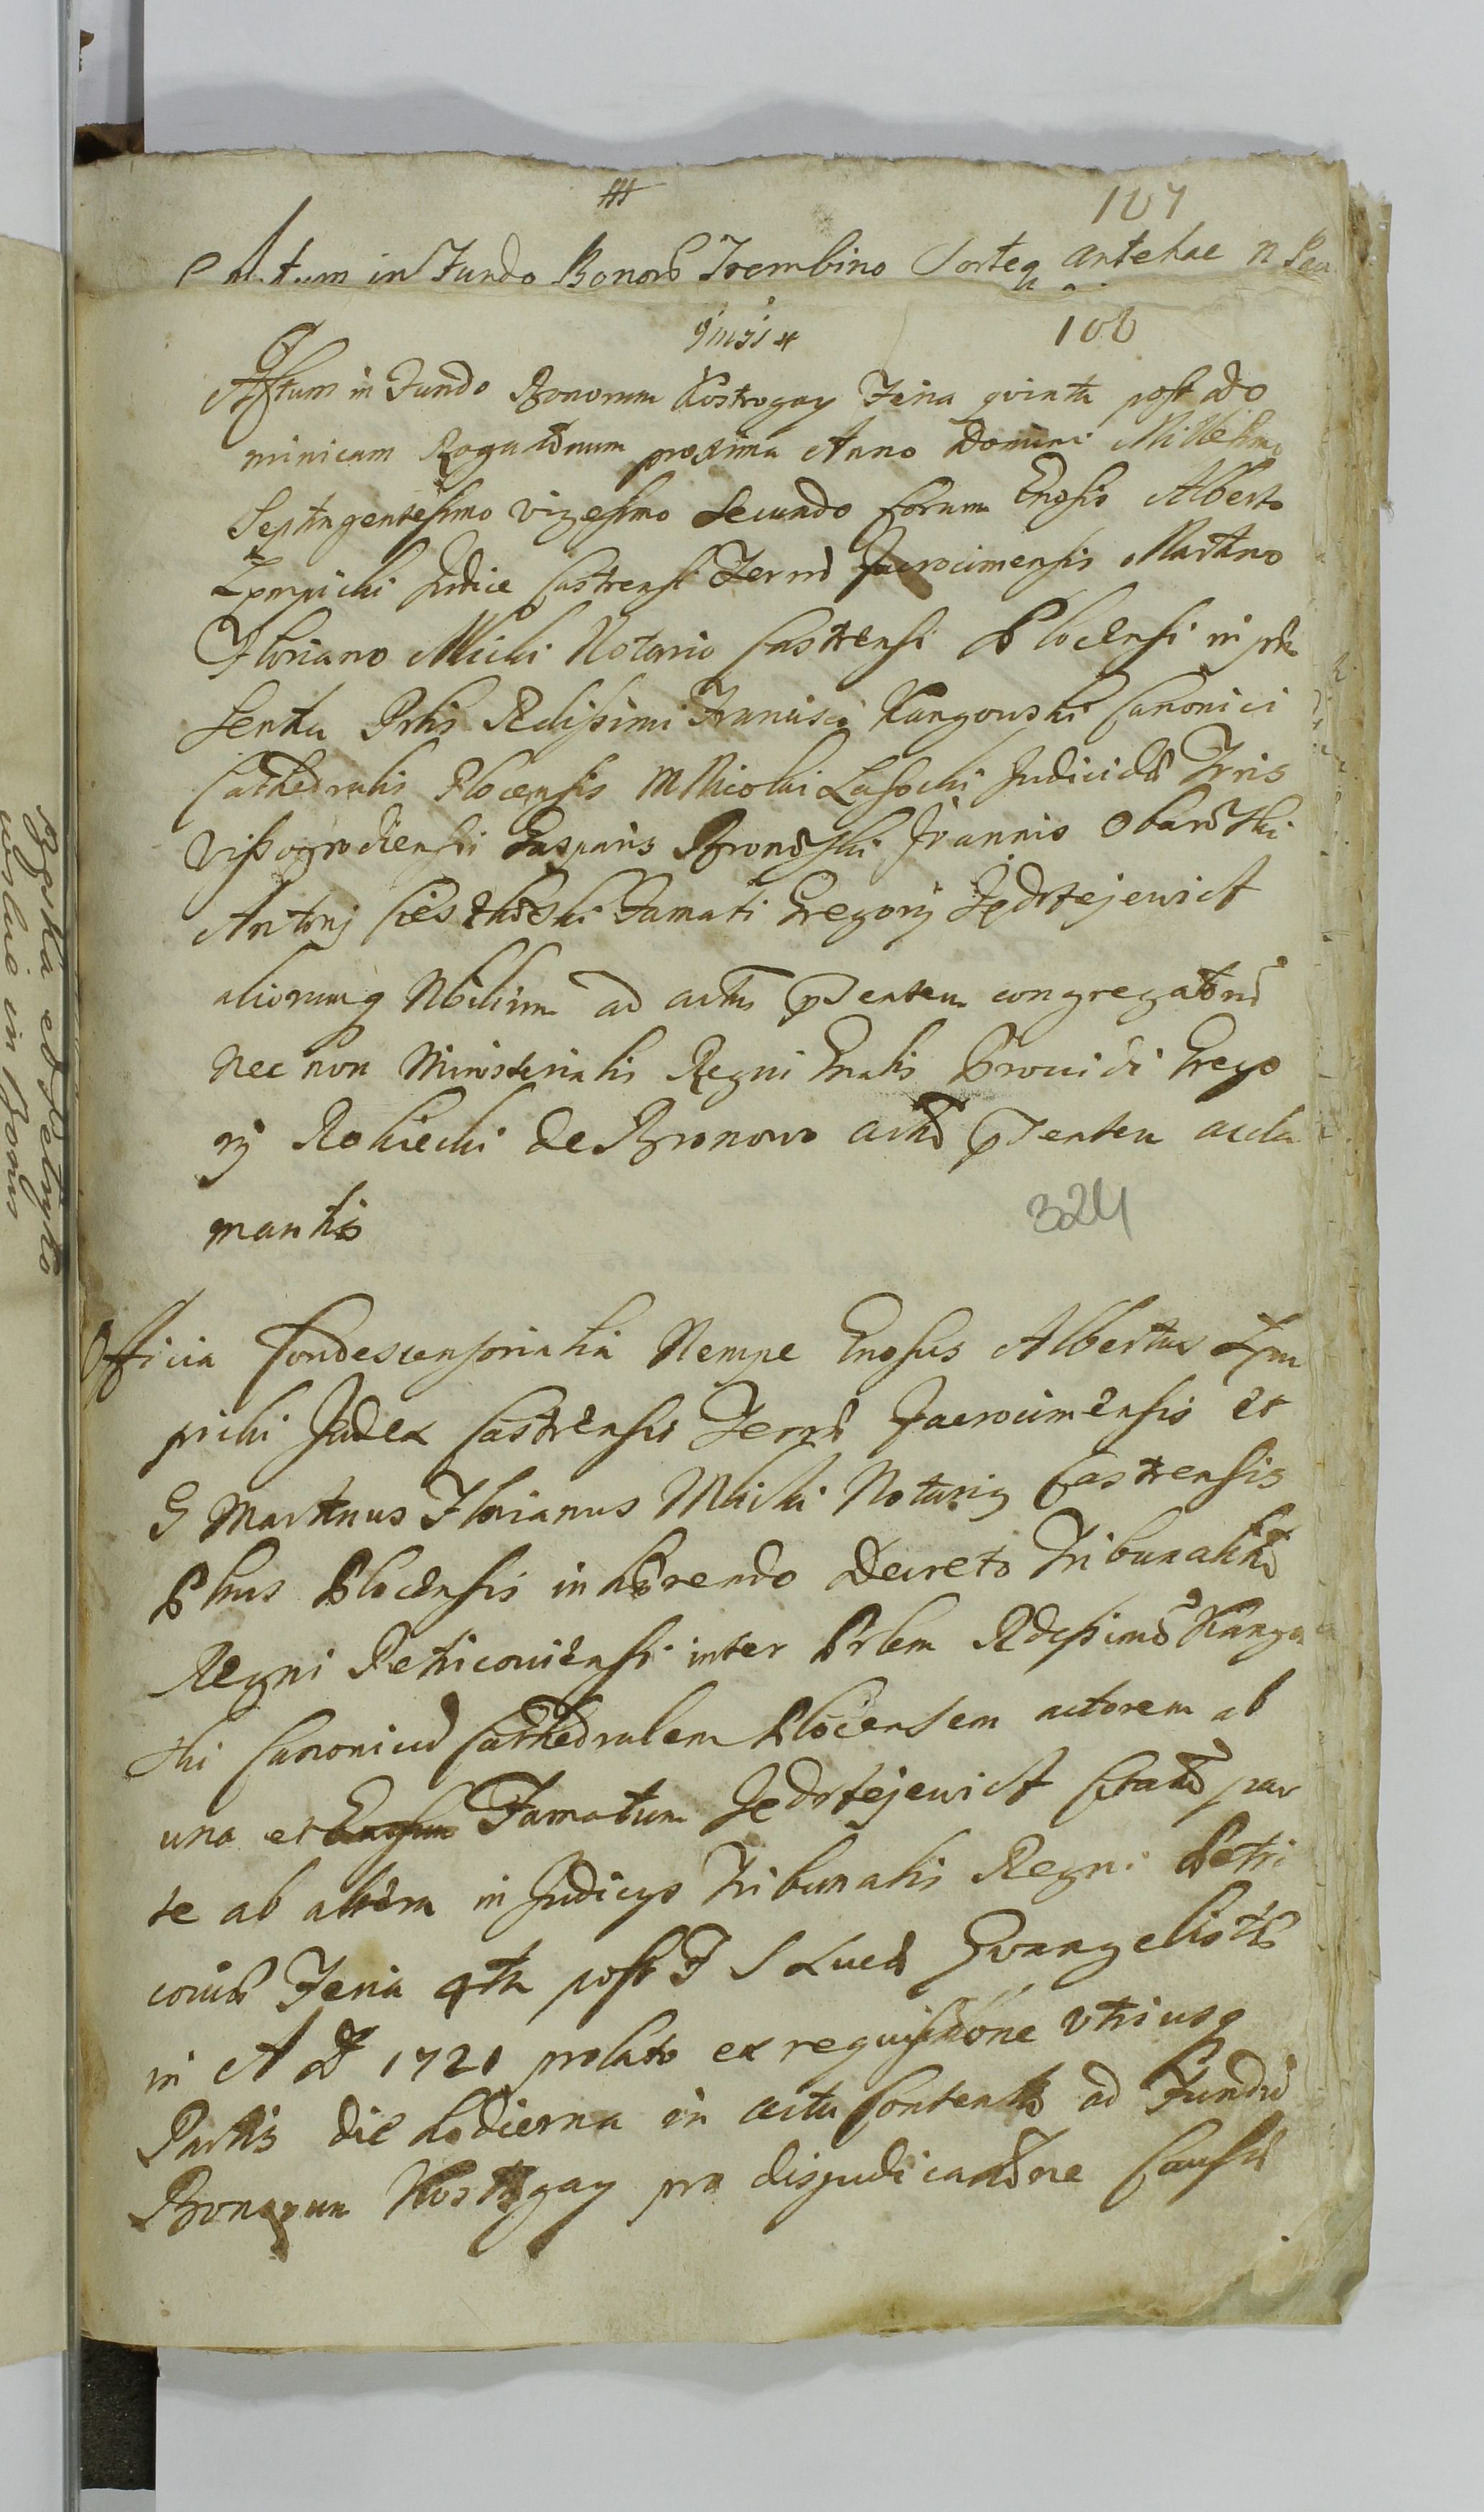 107
Actum in Fundo Bonorũ Trembino Sorteq antehac
106
Actum in Fundo Bonorum Kostrogay Feria quinta post do
minicam Rogationum proxima Anno Domini Millesimo
Septingentesimo vigesimo Secundo Coram Gnosis Alberto
Zempicki Judice Castrensi Terrũ Zacrocimensis Martino
Floriano Mlicki Notario Castrensi Plocensi in prae
sentia Prlis Rdissimi Francisci Kangowski Canonici
Cathedralis Plocensis MNicolai Lasocki Judicis Trris
Vissogrodiensis Gasparis Bronowski Joannis Obarski
Antonij Famati Gregorij Jędrzejewicz
aliorumq Nbilium ad actũ pſentem congregatorũ
nec non Ministerialis Regni Gnalis Providi Grego
rij Rokicki de Bronowo actũ pſentem accla
mantis
324
Officia Condescensorialia Nempe Gnosus Albertus Zem
picki Judex Castrensis Terrũ Zacrocimensis et
G Martinus Florianus Mlicki Notarius Castrensis
Plnus Plocensis inhærendo Decreto Tribunalitio
Regni Petricoviensi inter Prlem Rdissimũ Kango
ski Canonicũ Cathedralem Plocensem actorem ab
una et Famatum Jędrzejewicz Citatũ par
te ab altera in Judicijs Tribunalis Regni Petri
covien Feria 4ta post F S Lucæ Evangelistæ
in A D 1721 prolato ex requisitione utriusq
Partis die hodierna in actu contenta ad Fundũ
Bonorum Kostrogay pro disjudicatione Causæ